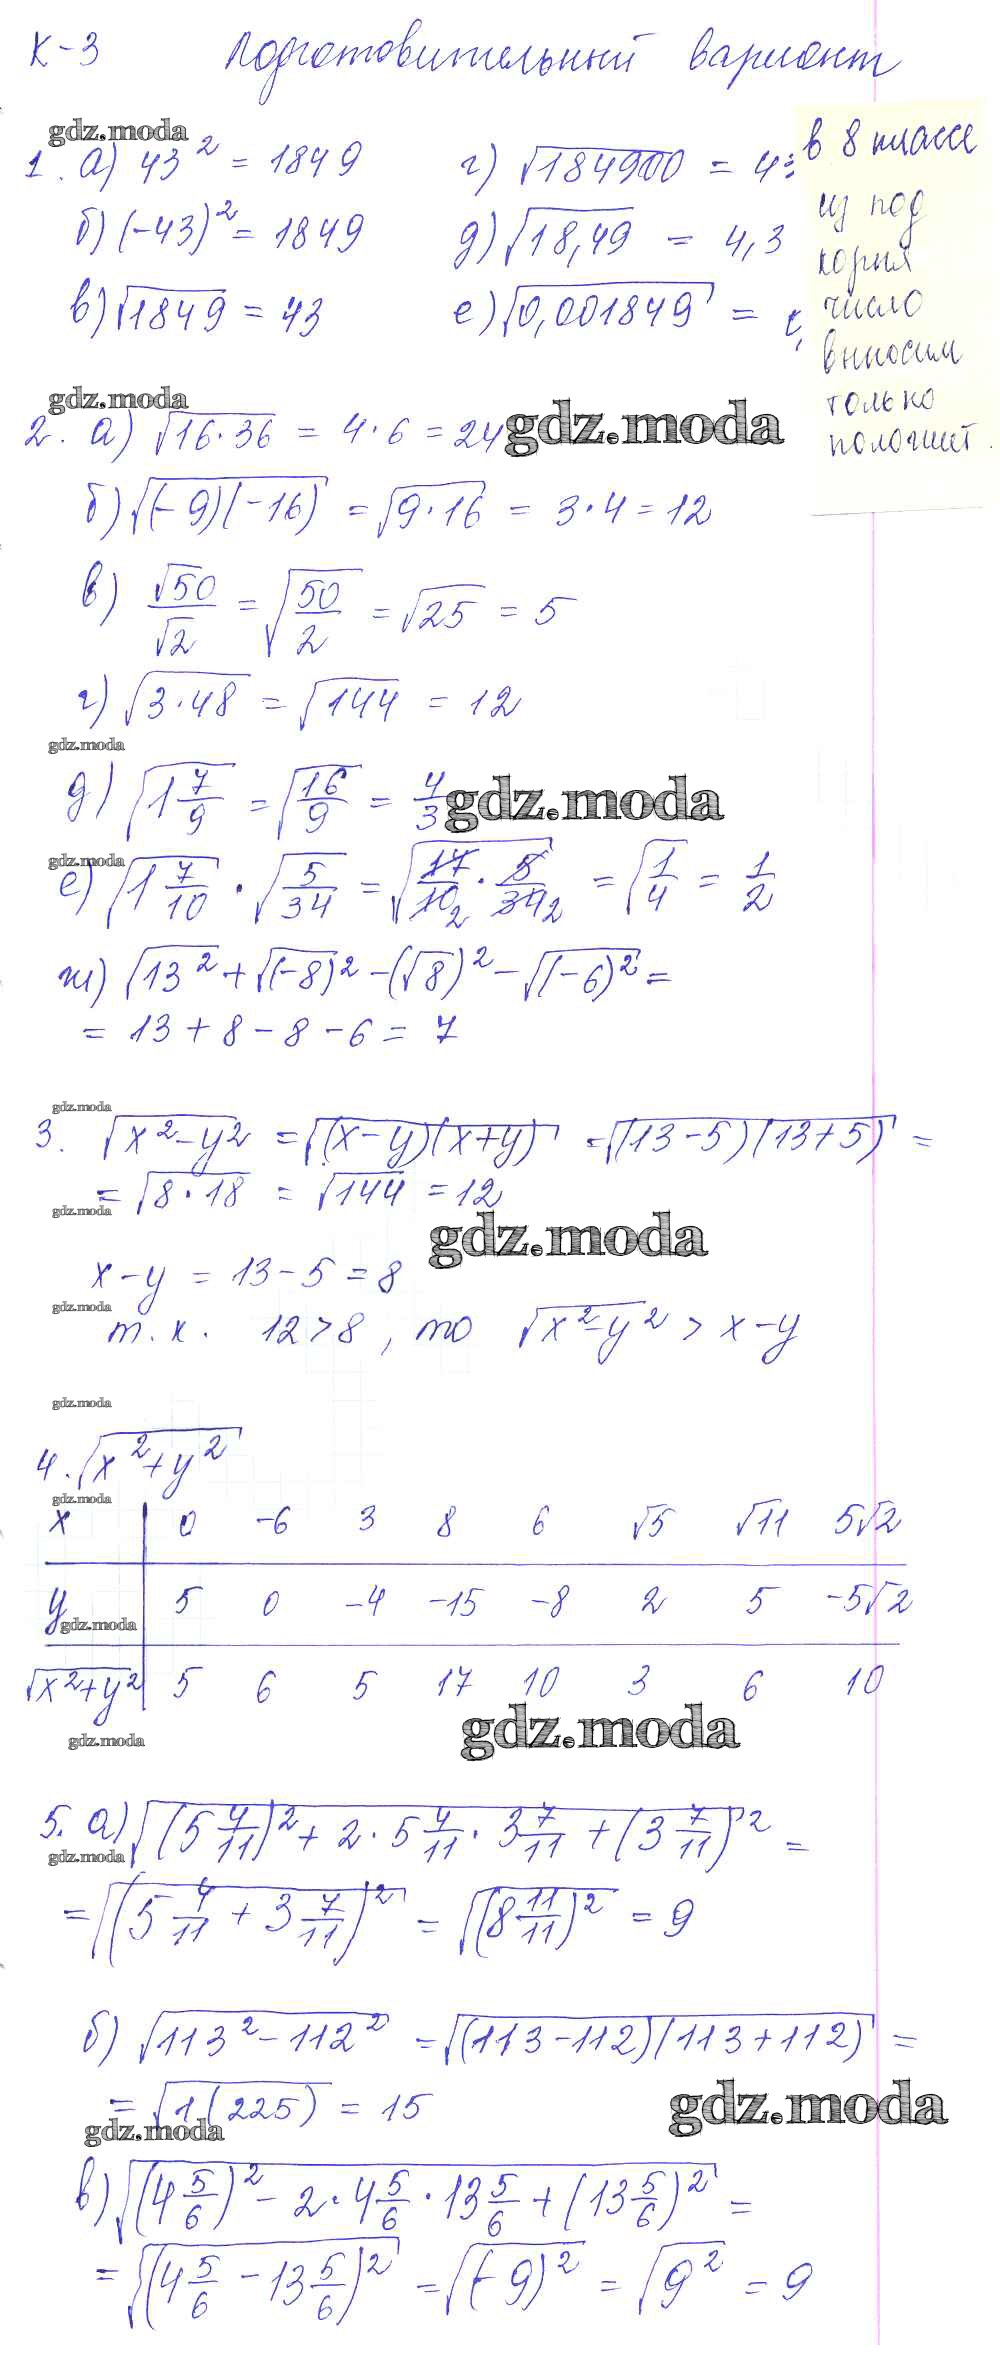 К-3 Подготовительный вариант
gdz.moda
1. а) 43² = 1849 г) √184900 = 43
б) (-43)² = 1849 д) √18,49 = 4,3
в) √1849 = 43 е) √0,001849 =
в 8 классе
из под
корня
число
выносим
только
положит.
gdz.moda
2. а) √16·36 = 4·6 = 24
gdz.moda
б) √(-9)(-16) = √9·16 = 3·4 = 12
в) √50/√2 = √50/2 = √25 = 5
г) √3·48 = √144 = 12
gdz.moda
д) √1 7/9 = √16/9 = 4/3
gdz.moda
gdz.moda
е) √1 7/10 · √5/34 = √17/10 2 · 5/34 2 = √1/4 = 1/2
ж) √13² + √(-8)² - (√8)² - √(-6)² =
= 13 + 8 - 8 - 6 = 7
gdz.moda
3. √x²-y² = √(x-y)(x+y) = √(13-5)(13+5) =
= √8·18 = √144 = 12
gdz.moda
gdz.moda
x-y = 13-5 = 8
gdz.moda
т.к. 12>8, то √x²-y² > x-y
gdz.moda
4. √x²+y²
gdz.moda
x 0 -6 3 8 6 √5 √11 5√2
y 5 0 -4 -15 -8 2 5 -5√2
gdz.moda
√x²+y² 5 6 5 17 10 3 6 10
gdz.moda
gdz.moda
5. а) √(5 4/11)² + 2·5 4/11·3 7/11 + (3 7/11)² =
gdz.moda
= √(5 4/11 + 3 7/11)² = √(8 11/11)² = 9
б) √113²-112² = √(113-112)(113+112) =
= √1(225) = 15
gdz.moda
gdz.moda
в) √(4 5/6)² - 2·4 5/6·13 5/6 + (13 5/6)² =
= √(4 5/6 - 13 5/6)² = √(-9)² = √9² = 9